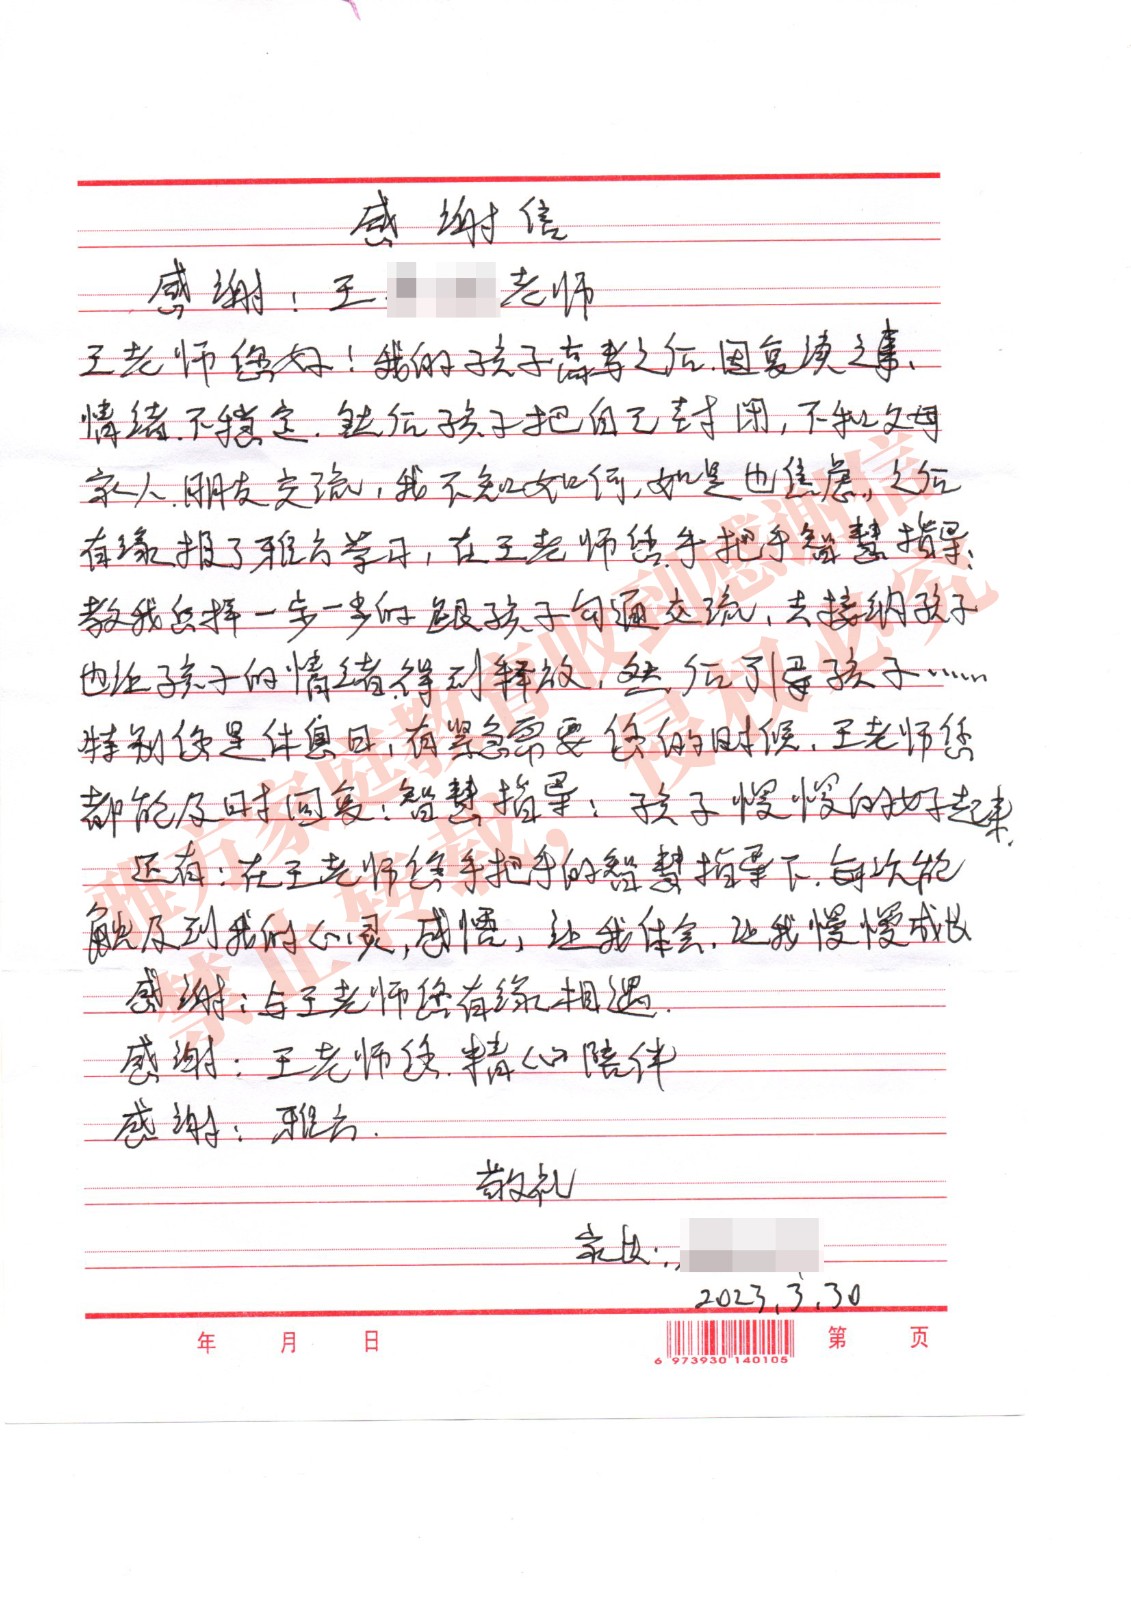 感谢信
感谢：王 老师
王老师您好！我的孩子高考之后.因复读之事、
情绪.不稳定.然后孩子把自己封闭，不和父母
家人.朋友交流，我不知如何，如是也焦虑，之后
有缘报了雅方学习，在王老师您.手把手智慧指导；
教我怎样一步一步的跟孩子勾通交流，去接纳孩子
也让孩子的情绪.得到释放.然后引导孩子……
特别您是休息日，有紧急需要您的时候.王老师您
都能及时回复：智慧指导：孩子慢慢的好起来.
还有：在王老师您手把手的智慧指导下.每次能
触及到我的心灵，感悟，让我体会.让我慢慢成长
感谢：与王老师您有缘相遇.
感谢：王老师您.精心陪伴
感谢：雅方.
敬礼
家长：
2023.3.30
年 月 日
6 973930 140105
第 页
雅方家庭教育收到感谢信
禁止转载，侵权必究